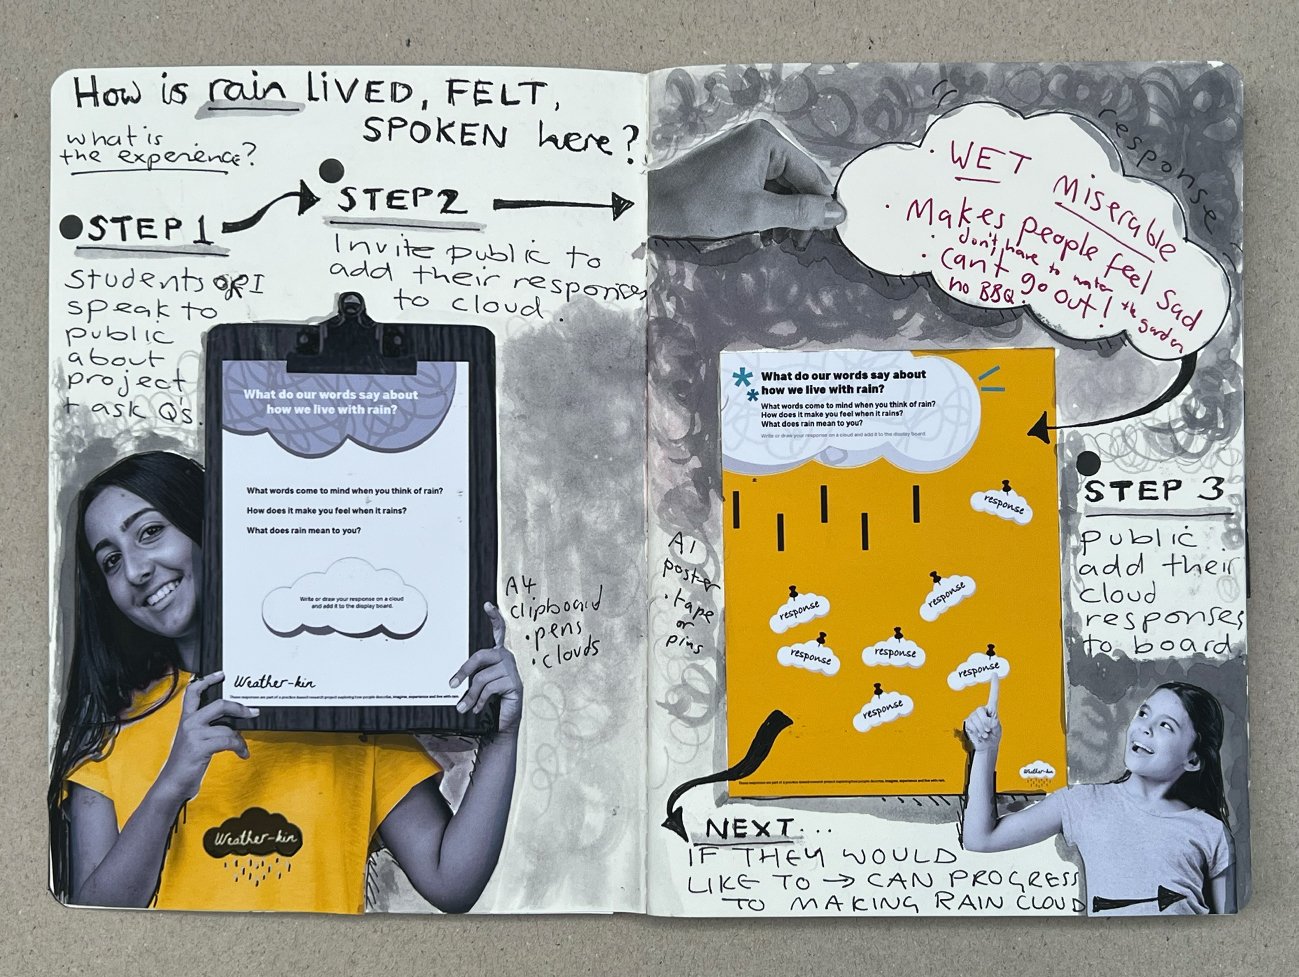 How is rain LIVED, FELT,
SPOKEN here?
what is
the experience?
STEP 1
Students or I
speak to
public
about
project
+ ask Q's.
STEP 2
Invite public to
add their responses
to cloud.
What do our words say about
how we live with rain?
What words come to mind when you think of rain?
How does it make you feel when it rains?
What does rain mean to you?
Write or draw your response on a cloud
and add it to the display board.
Weather-kin
These responses are part of a practice-based research project exploring how people describe, imagine, experience and live with rain.
Weather-kin
A4
clipboard
• pens
• clouds
response
• WET Miserable
• Makes people feel sad
don't have to water the garden
• can't go out!
no BBQ.
What do our words say about
how we live with rain?
What words come to mind when you think of rain?
How does it make you feel when it rains?
What does rain mean to you?
Write or draw your response on a cloud and add it to the display board.
response
response
response
response
response
response
response
These responses are part of a practice-based research project exploring how people describe, imagine, experience and live with rain.
Weather-kin
A1
poster
• tape
or
pins
STEP 3
Public
add their
cloud
responses
to board
NEXT...
IF THEY WOULD
LIKE TO → CAN PROGRESS
TO MAKING RAIN CLOUD